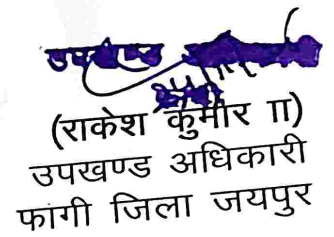 उपखण्ड
(राकेश कुमार II)
उपखण्ड अधिकारी
फागी जिला जयपुर